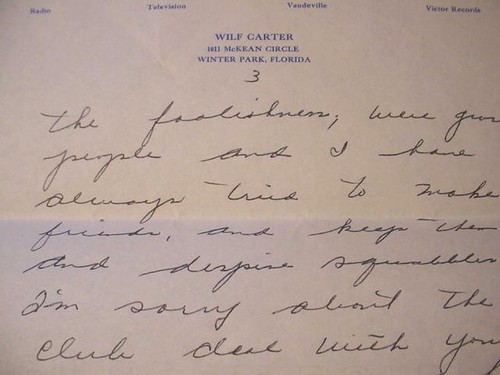 Radio Television Vaudeville Victor Records
WILF CARTER
1011 McKEAN CIRCLE
WINTER PARK, FLORIDA
3
the foolishness, were
people and I have
always tried to make
friends, and keep them
and despise squabbles
I'm sorry about the
club deal with you